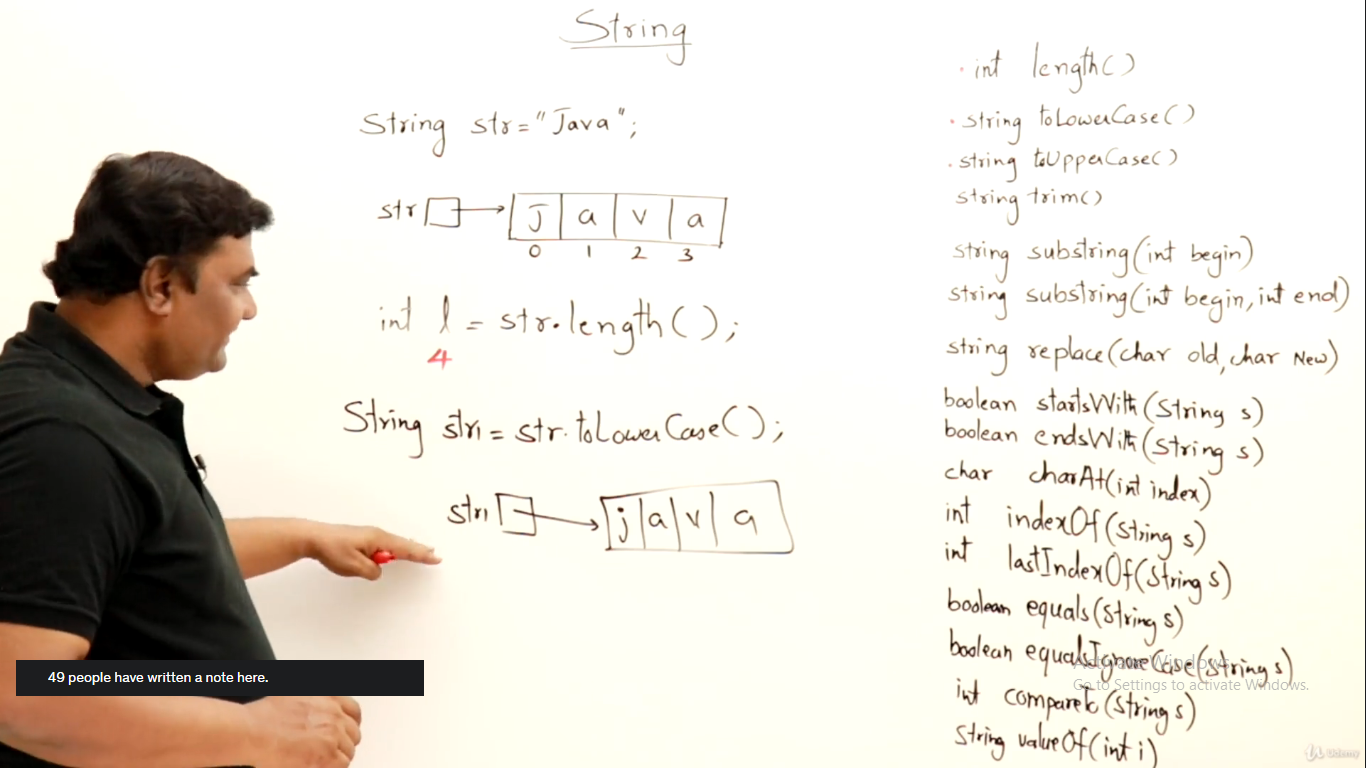 String
String str="Java";
str J a v a
0 1 2 3
int l = str.length();
4
String str1 = str.toLowerCase();
str1 j a v a
int length()
string toLowerCase()
string toUpperCase()
string trim()
string substring(int begin)
string substring(int begin, int end)
string replace(char old, char New)
boolean startsWith(String s)
boolean endsWith(String s)
char charAt(int index)
int indexOf(String s)
int lastIndexOf(String s)
boolean equals(String s)
boolean equalsIgnoreCase(String s)
int compareTo(String s)
String valueOf(int i)
49 people have written a note here.
Activate Windows
Go to Settings to activate Windows.
Udemy